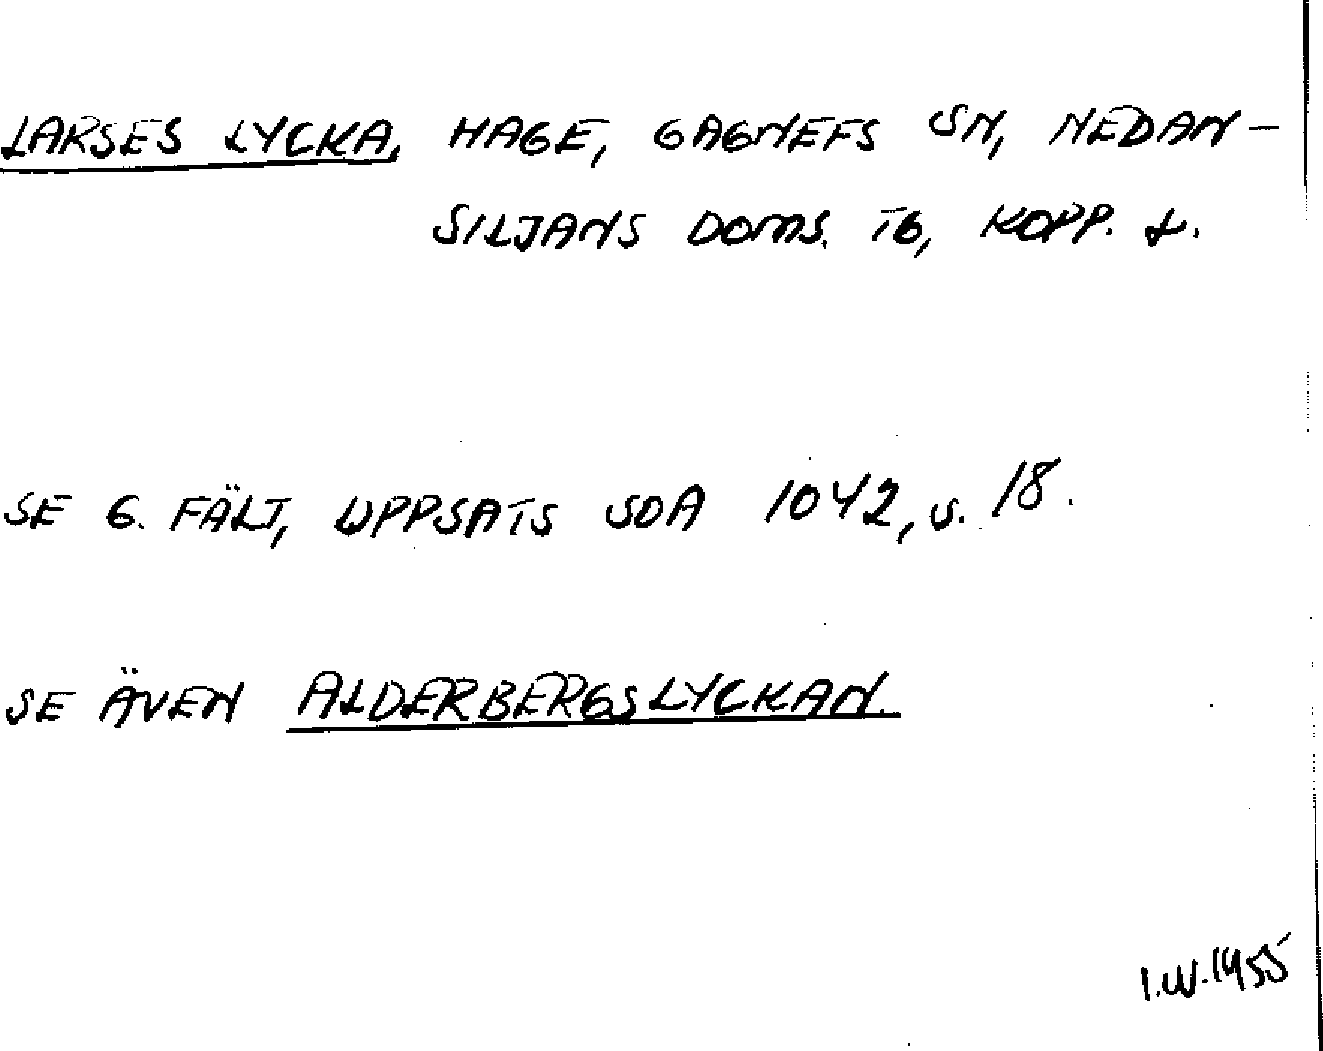 LARSES LYCKA, HAGE, GAGNEFS SN, NEDAN-
SILJANS DOMS. TG, KOPP. L.
SE G. FÄLT, UPPSATS SOA 1042, S. 18.
SE ÄVEN ALDERBERGSLYCKAN.
I.W. 1955